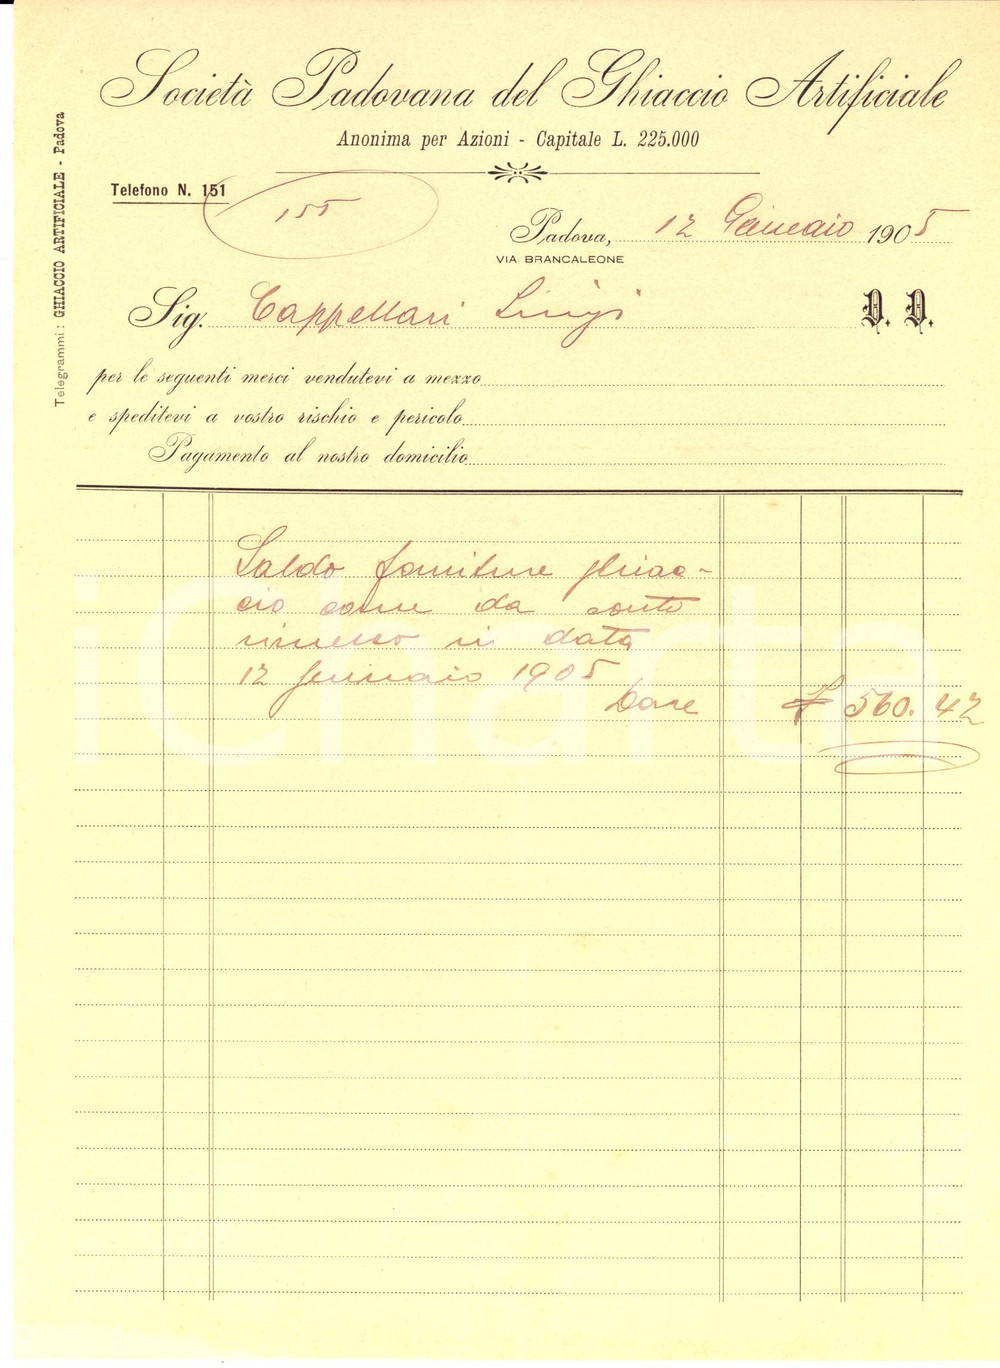 Società Padovana del Ghiaccio Artificiale
Anonima per Azioni - Capitale L. 225.000
Telegrammi: GHIACCIO ARTIFICIALE - Padova
Telefono N. 151
155
Padova, 12 Gennaio 1905
VIA BRANCALEONE
Sig. Cappellari Luigi D. D.
per le seguenti merci vendutevi a mezzo
e speditevi a vostro rischio e pericolo
Pagamento al nostro domicilio
Saldo forniture ghiac-
cio come da conto
rimesso in data
12 gennaio 1905
Dare £ 560.42
iCharta